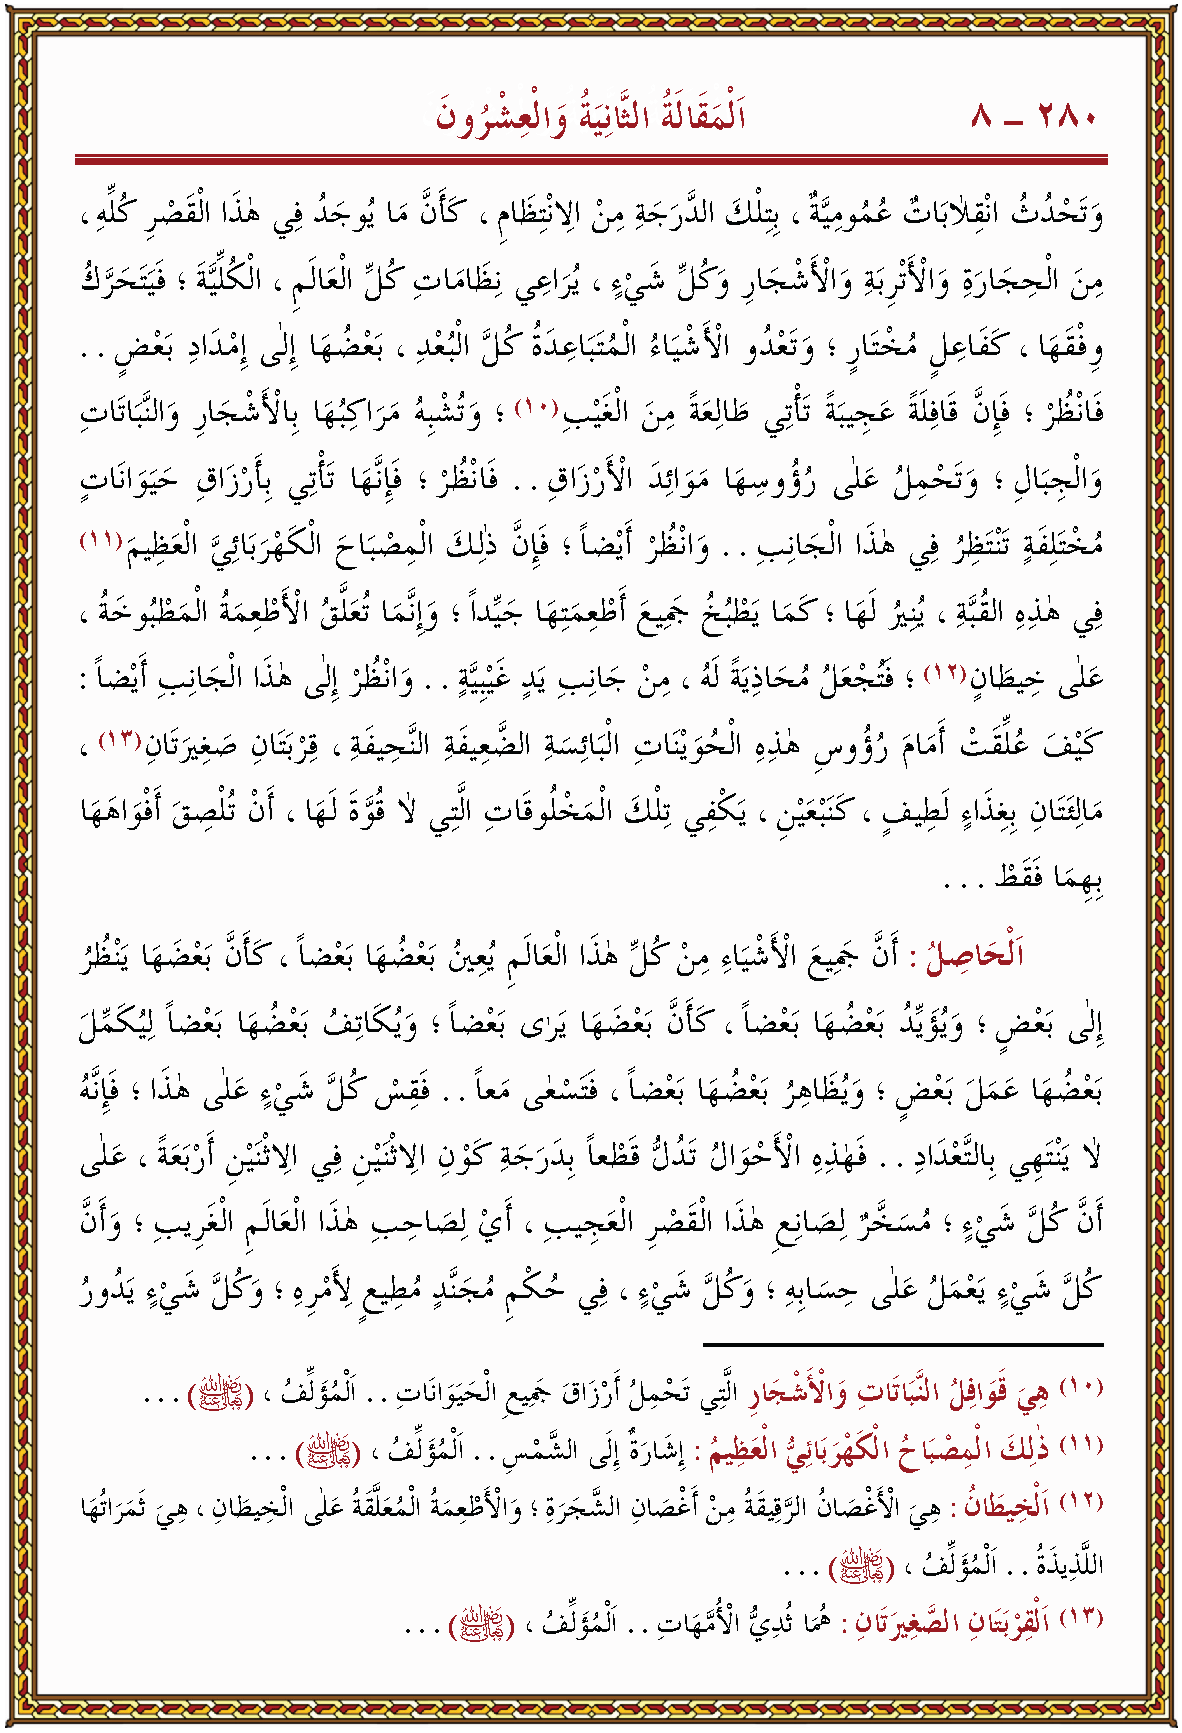 ٢٨٠ – ٨ اَلْمَقَالَةُ الثَّانِيَةُ وَالْعِشْرُونَ
وَتَحْدُثُ انْقِلاٰبَاتٌ عُمُومِيَّةٌ ، بِتِلْكَ الدَّرَجَةِ مِنْ الِانْتِظَامِ ، كَأَنَّ مَا يُوجَدُ فِي هٰذَا الْقَصْرِ كُلِّهِ ،
مِنَ الْحِجَارَةِ وَالْأَتْرِبَةِ وَالْأَشْجَارِ وَكُلِّ شَيْءٍ ، يُرَاعِي نِظَامَاتِ كُلِّ الْعَالَمِ ، الْكُلِّيَّةَ ؛ فَيَتَحَرَّكُ
وِفْقَهَا ، كَفَاعِلٍ مُخْتَارٍ ؛ وَتَعْدُو الْأَشْيَاءُ الْمُتَبَاعِدَةُ كُلَّ الْبُعْدِ ، بَعْضُهَا إِلٰى إِمْدَادِ بَعْضٍ . .
فَانْظُرْ ؛ فَإِنَّ قَافِلَةً عَجِيبَةً تَأْتِي طَالِعَةً مِنَ الْغَيْبِ(١٠) ؛ وَتُشْبِهُ مَرَاكِبُهَا بِالْأَشْجَارِ وَالنَّبَاتَاتِ
وَالْجِبَالِ ؛ وَتَحْمِلُ عَلٰى رُؤُوسِهَا مَوَائِدَ الْأَرْزَاقِ . . فَانْظُرْ ؛ فَإِنَّهَا تَأْتِي بِأَرْزَاقِ حَيَوَانَاتٍ
مُخْتَلِفَةٍ تَنْتَظِرُ فِي هٰذَا الْجَانِبِ . . وَانْظُرْ أَيْضاً ؛ فَإِنَّ ذٰلِكَ الْمِصْبَاحَ الْكَهْرَبَائِيَّ الْعَظِيمَ(١١)
فِي هٰذِهِ الْقُبَّةِ ، يُنِيرُ لَهَا ؛ كَمَا يَطْبُخُ جَمِيعَ أَطْعِمَتِهَا جَيِّداً ؛ وَإِنَّمَا تُعَلَّقُ الْأَطْعِمَةُ الْمَطْبُوخَةُ ،
عَلٰى خِيطَانٍ(١٢) ؛ فَتُجْعَلُ مُحَاذِيَةً لَهُ ، مِنْ جَانِبِ يَدٍ غَيْبِيَّةٍ . . وَانْظُرْ إِلٰى هٰذَا الْجَانِبِ أَيْضاً :
كَيْفَ عُلِّقَتْ أَمَامَ رُؤُوسِ هٰذِهِ الْحُوَيْنَاتِ الْبَائِسَةِ الضَّعِيفَةِ النَّحِيفَةِ ، قِرْبَتَانِ صَغِيرَتَانِ(١٣) ،
مَالِئَتَانِ بِغِذَاءٍ لَطِيفٍ ، كَنَبْعَيْنِ ، يَكْفِي تِلْكَ الْمَخْلُوقَاتِ الَّتِي لاٰ قُوَّةَ لَهَا ، أَنْ تُلْصِقَ أَفْوَاهَهَا
بِهِمَا فَقَطْ . . .
اَلْحَاصِلُ : أَنَّ جَمِيعَ الْأَشْيَاءِ مِنْ كُلِّ هٰذَا الْعَالَمِ يُعِينُ بَعْضُهَا بَعْضاً ، كَأَنَّ بَعْضَهَا يَنْظُرُ
إِلٰى بَعْضٍ ؛ وَيُؤَيِّدُ بَعْضُهَا بَعْضاً ، كَأَنَّ بَعْضَهَا يَرٰى بَعْضاً ؛ وَيُكَاتِفُ بَعْضُهَا بَعْضاً لِيُكَمِّلَ
بَعْضُهَا عَمَلَ بَعْضٍ ؛ وَيُظَاهِرُ بَعْضُهَا بَعْضاً ، فَتَسْعٰى مَعاً . . فَقِسْ كُلَّ شَيْءٍ عَلٰى هٰذَا ؛ فَإِنَّهُ
لاٰ يَنْتَهِي بِالتَّعْدَادِ . . فَهٰذِهِ الْأَحْوَالُ تَدُلُّ قَطْعاً بِدَرَجَةِ كَوْنِ الِاثْنَيْنِ فِي الِاثْنَيْنِ أَرْبَعَةً ، عَلٰى
أَنَّ كُلَّ شَيْءٍ ؛ مُسَخَّرٌ لِصَانِعِ هٰذَا الْقَصْرِ الْعَجِيبِ ، أَيْ لِصَاحِبِ هٰذَا الْعَالَمِ الْغَرِيبِ ؛ وَأَنَّ
كُلَّ شَيْءٍ يَعْمَلُ عَلٰى حِسَابِهِ ؛ وَكُلَّ شَيْءٍ ، فِي حُكْمِ مُجَنَّدٍ مُطِيعٍ لِأَمْرِهِ ؛ وَكُلَّ شَيْءٍ يَدُورُ
(١٠) هِيَ قَوَافِلُ النَّبَاتَاتِ وَالْأَشْجَارِ الَّتِي تَحْمِلُ أَرْزَاقَ جَمِيعِ الْحَيَوَانَاتِ . . اَلْمُؤَلِّفُ ، (رضي الله تعالى عنه) . . .
(١١) ذٰلِكَ الْمِصْبَاحُ الْكَهْرَبَائِيُّ الْعَظِيمُ : إِشَارَةٌ إِلَى الشَّمْسِ . . اَلْمُؤَلِّفُ ، (رضي الله تعالى عنه) . . .
(١٢) اَلْخِيطَانُ : هِيَ الْأَغْصَانُ الرَّقِيقَةُ مِنْ أَغْصَانِ الشَّجَرَةِ ؛ وَالْأَطْعِمَةُ الْمُعَلَّقَةُ عَلَى الْخِيطَانِ ، هِيَ ثَمَرَاتُهَا
اللَّذِيذَةُ . . اَلْمُؤَلِّفُ ، (رضي الله تعالى عنه) . . .
(١٣) اَلْقِرْبَتَانِ الصَّغِيرَتَانِ : هُمَا ثُدِيُّ الْأُمَّهَاتِ . . اَلْمُؤَلِّفُ ، (رضي الله تعالى عنه) . . .